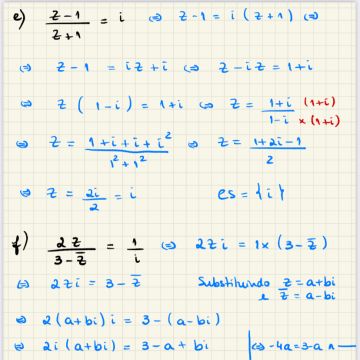 e) z-1/z+1 = i ⇔ z-1 = i(z+1) ⇔
⇔ z-1 = iz+i ⇔ z-iz = 1+i
⇔ z(1-i) = 1+i ⇔ z = 1+i (1+i)/1-i ×(1+i)
⇔ z = 1+i+i+i²/1²+1² ⇔ z = 1+2i-1/2
⇔ z = 2i/2 = i es = {i}
f) 2z/3-z̅ = 1/i ⇔ 2zi = 1×(3-z̅)
⇔ 2zi = 3-z̅ Substituindo z=a+bi
e z̅=a-bi
⇔ 2(a+bi)i = 3-(a-bi)
⇔ 2i(a+bi) = 3-a+bi ⇔ -4a=3-a ∧